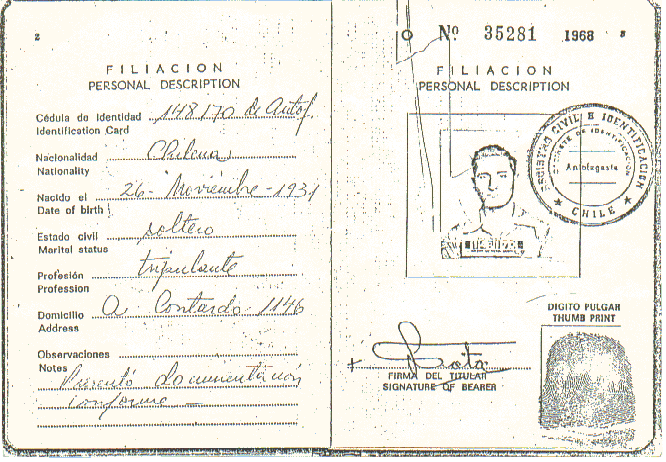 2
FILIACION
PERSONAL DESCRIPTION
Cédula de Identidad 148170 de Autof.
Identification Card
Nacionalidad Chilena
Nationality
Nacido el 26 - Noviembre - 1931
Date of birth
Estado civil soltero
Marital status
Profesión tripulante
Profession
Domicilio A Contardo 1146
Address
Observaciones
Notes Presentó documentación
conforme
Nº 35281 1968
FILIACION
PERSONAL DESCRIPTION
REGISTRO CIVIL E IDENTIFICACION
GABINETE DE IDENTIFICACION
Antofagasta
★ CHILE ★
DIGITO PULGAR
THUMB PRINT
FIRMA DEL TITULAR
SIGNATURE OF BEARER